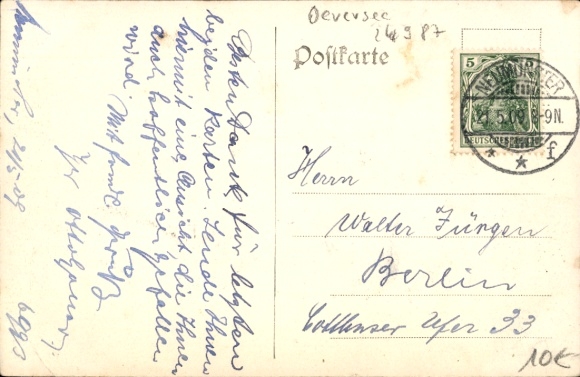 Oeversee
24 9 87
Postkarte
5 5
NEUMÜNSTER
21.5.09. 8-9N.
DEUTSCHES REICH
* * f
Herrn
Walter Jürgen
Berlin
Cottbuser Ufer 33
10€
Neumünster, 21/5-09
Besten Dank für letzten
beiden Karten. Sende Ihnen
hiermit eine Ansicht, die Ihnen
auch hoffentlich gefallen
wird. Mit frdl. Gruß
Ihr